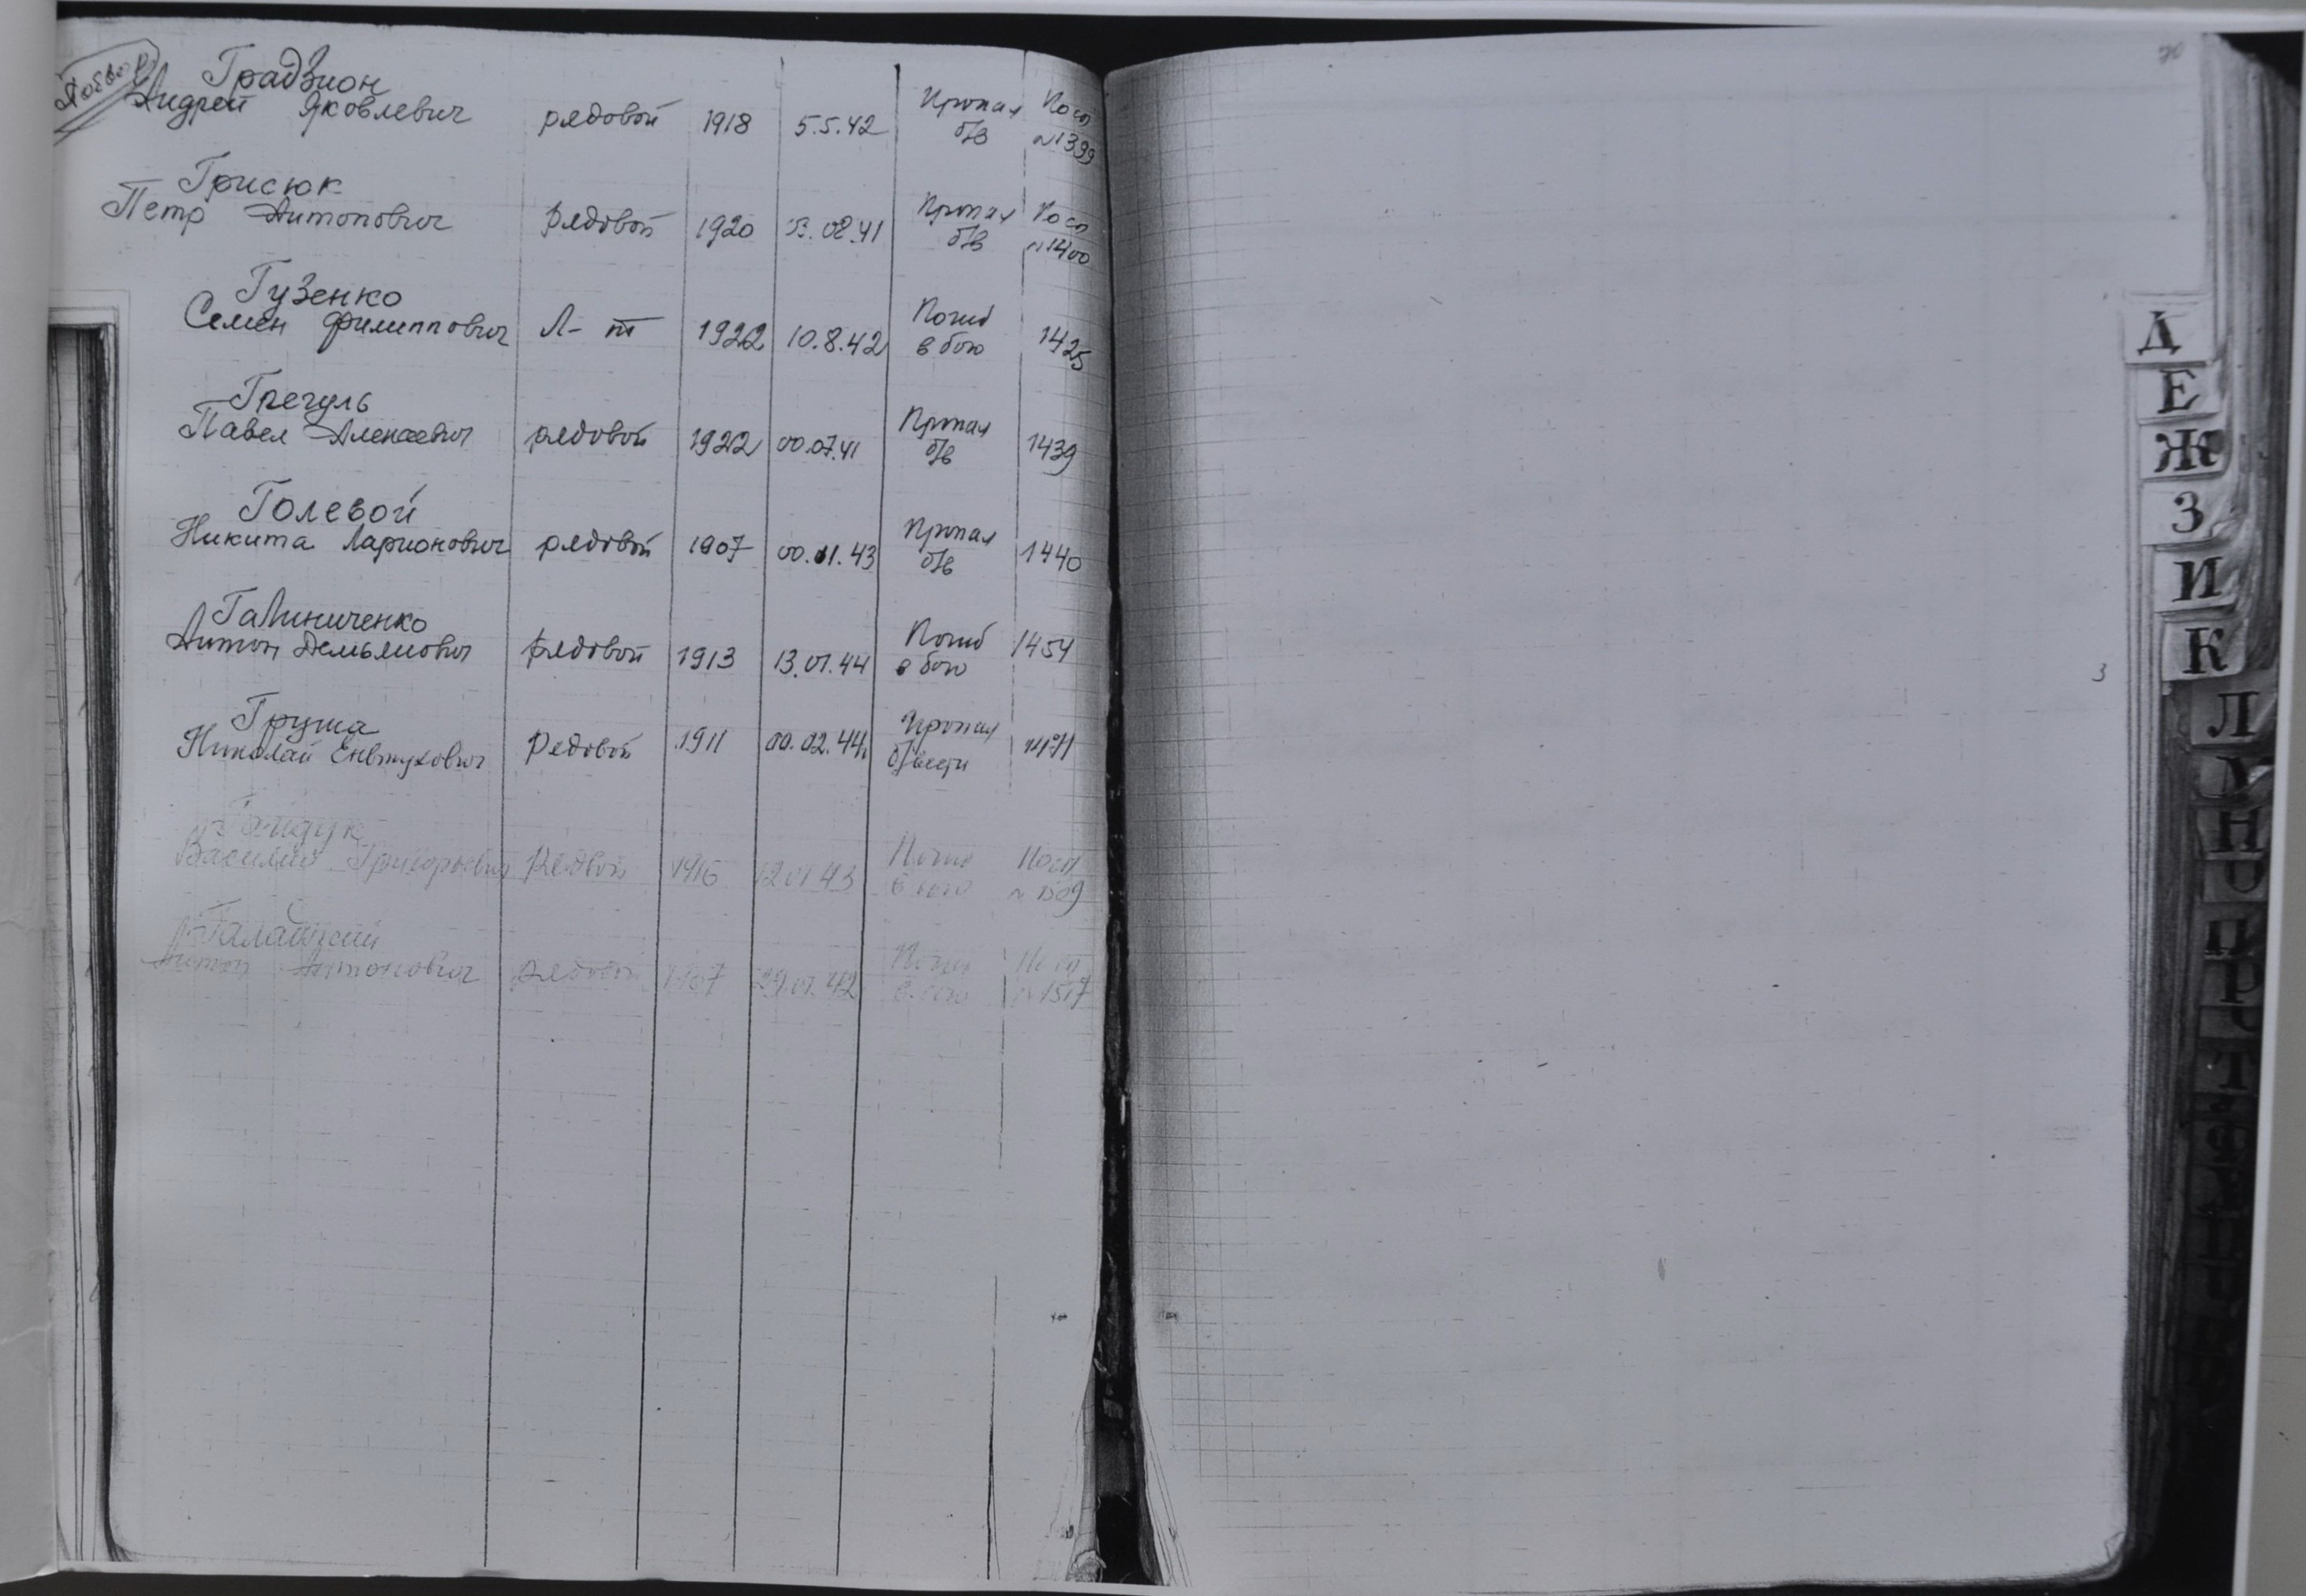 Градзион
Андрей Яковлевич рядовой 1918 5.5.42 Пропал б/в Посп №1399
Грисюк
Петр Антонович рядовой 1920 13.08.41 Пропал б/в Посп №1400
Гузенко
Семен Филиппович Л-т 1922 10.8.42 Погиб в бою 1425
Грегуль
Павел Алексеевич рядовой 1922 00.07.41 Пропал б/в 1439
Голевой
Никита Ларионович рядовой 1907 00.01.43 Пропал б/в 1440
Галиниченко
Антон Демьянович рядовой 1913 13.01.44 Погиб в бою 1454
Груша
Николай Евтухович Рядовой 1911 00.02.44 Пропал б/вести
Гайдук
Василий Григорьевич Рядовой 1916 12.01.43 Погиб в бою Посп №1509
Галайский
Антон Антонович рядовой 1907 29.01.42 Погиб в бою №1517
70
Д
Е
Ж
З
И
К
Л
Н
П
Р
Т